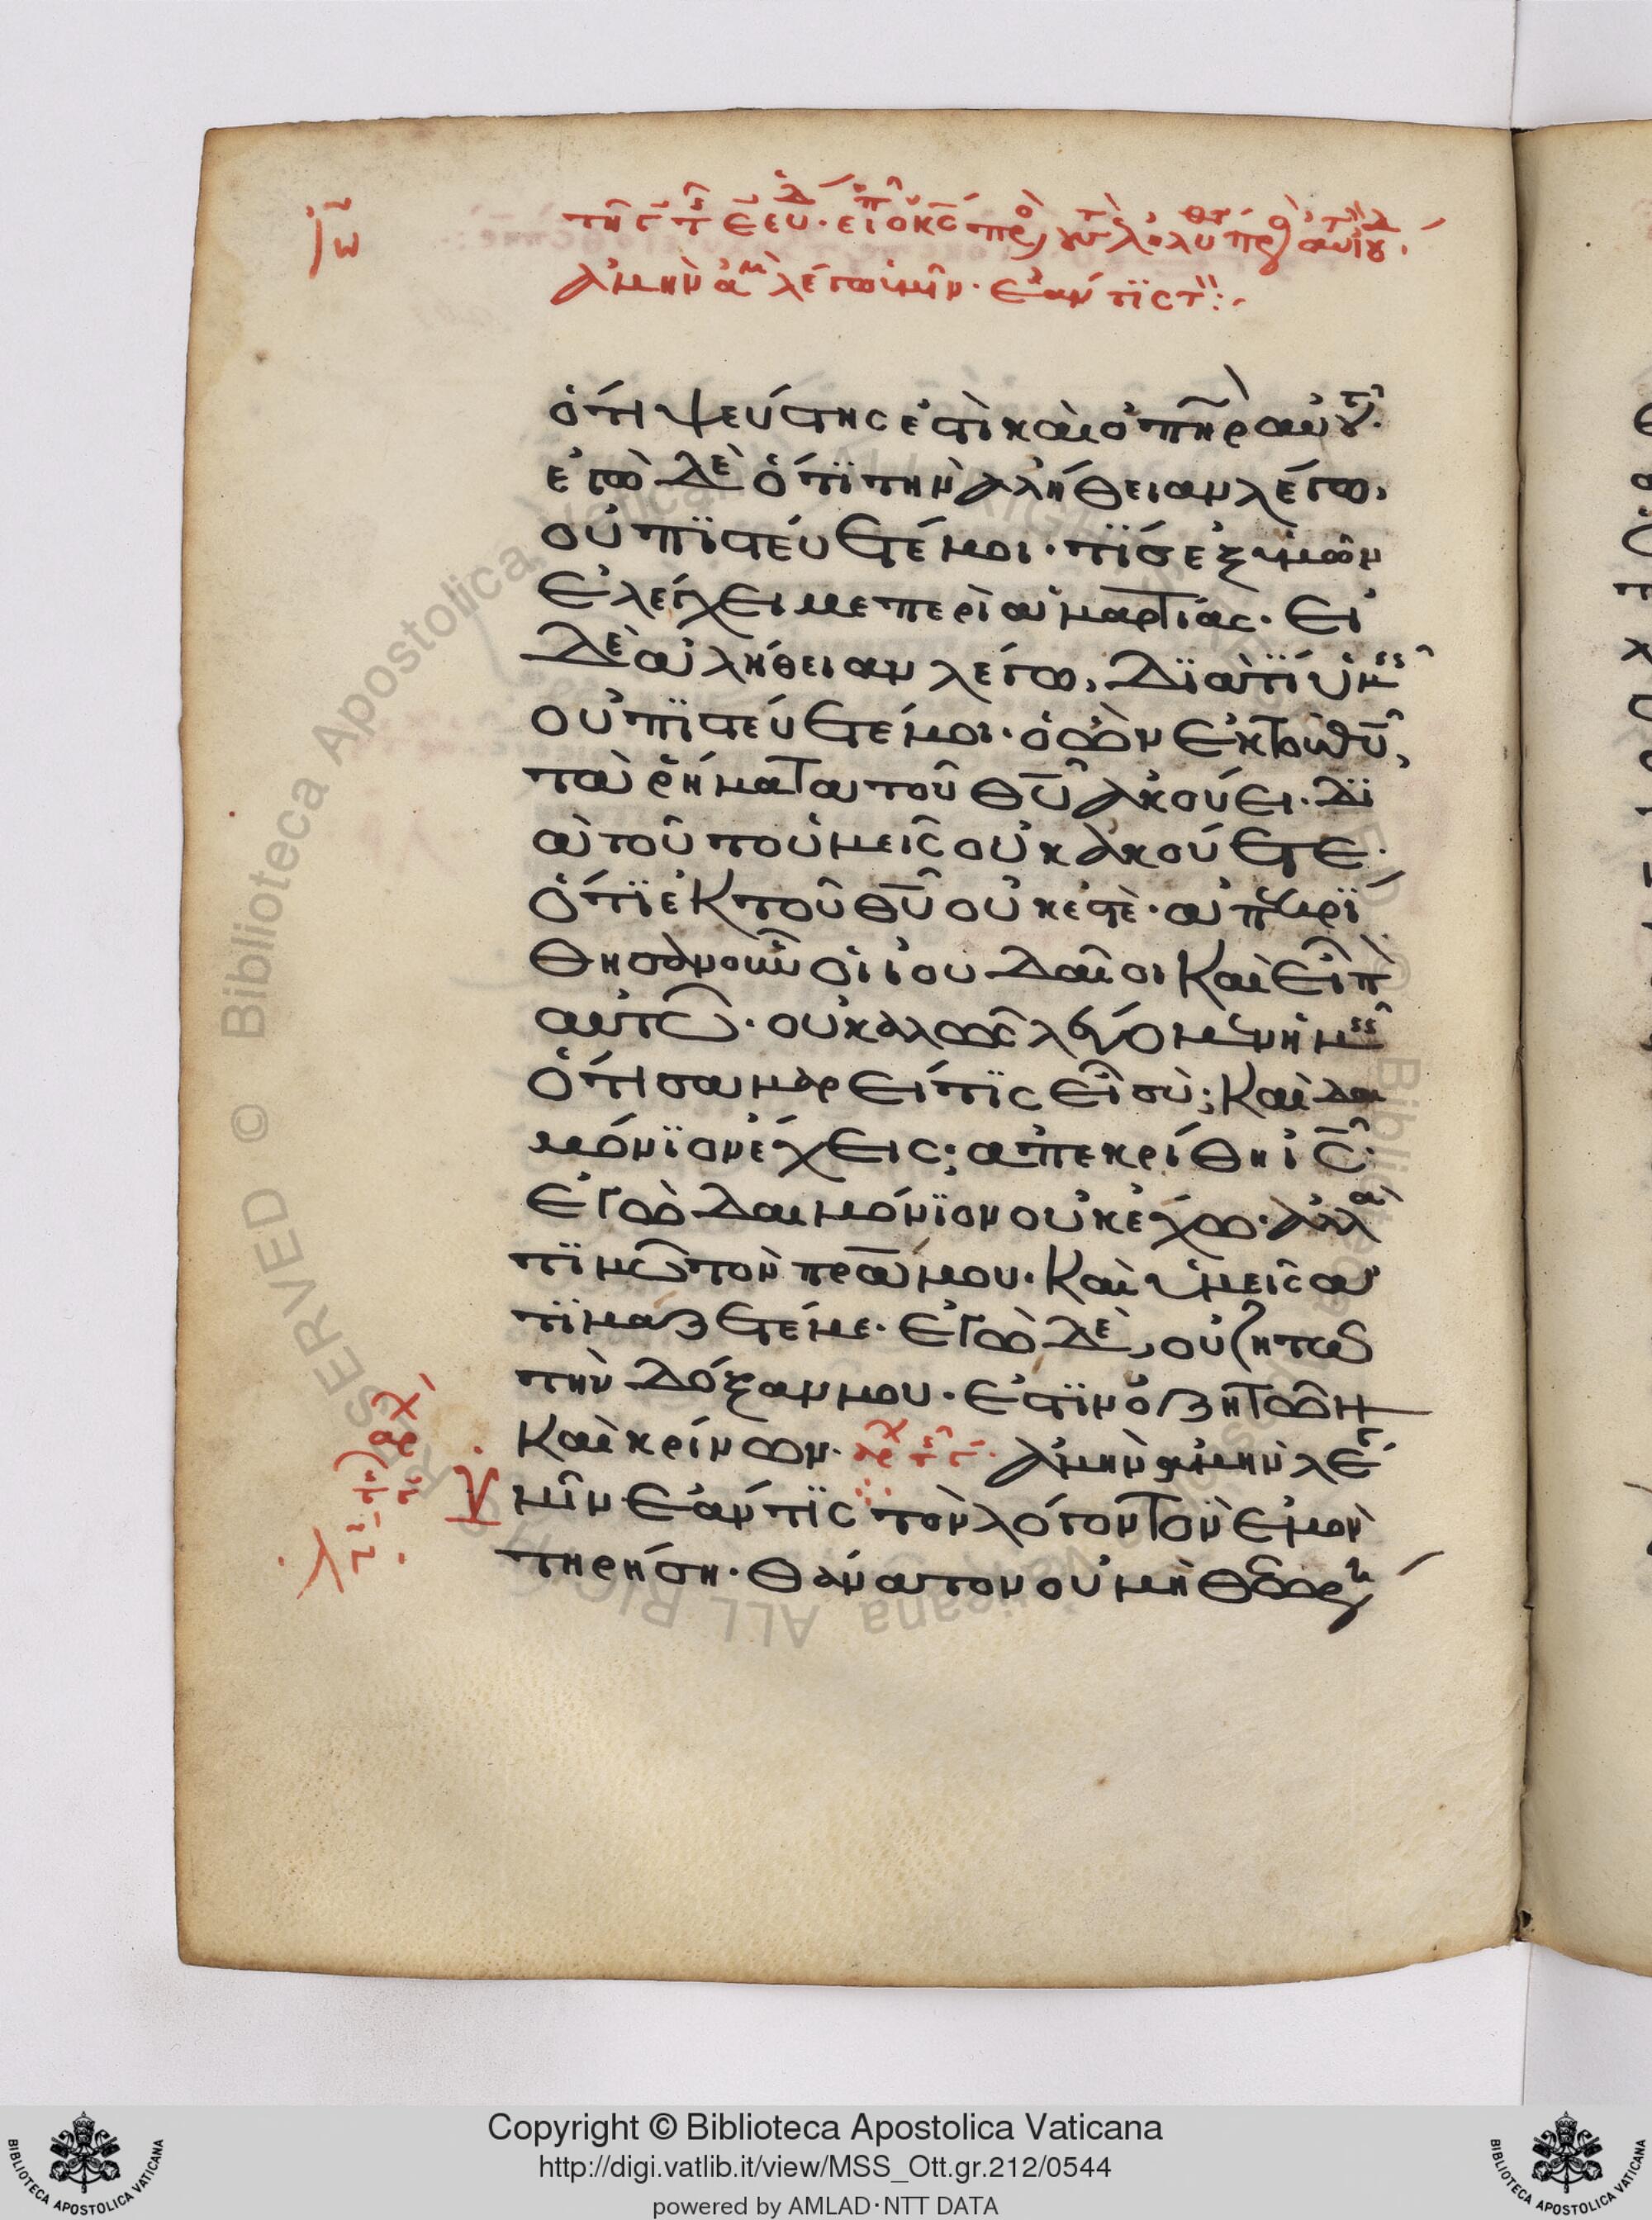 ὅτι ψεύστης ἐστὶ καὶ ὁ πηρ αὐτοῦ.
ἐγὼ δὲ ὅτι τὴν ἀλήθειαν λέγω,
οὐ πιστεύετέ μοι. τίς ἐξ ὑμῶν
ἐλέγχει με περὶ ἁμαρτίας. εἰ
δὲ ἀλήθειαν λέγω, διατί ὑμεῖς
οὐ πιστεύετέ μοι. ὁ ὢν ἐκ τοῦ θυ,
τὰ ῥήματα τοῦ θυ ἀκούει. δι
ὰ τοῦτο ὑμεῖς οὐκ ἀκούετε.
ὅτι ἐκ τοῦ θυ οὐκ ἐστέ. ἀπεκρί
θησαν οὖν οἱ ἰουδαῖοι καὶ εἶπον
αὐτῶ. οὐ καλῶς λέγομεν ἡμεῖς
ὅτι σαμαρείτις εἶ σύ; καὶ δαι
μόνιον ἔχεις; ἀπεκρίθη ις.
ἐγὼ δαιμόνιον οὐκ ἔχω. ἀλλὰ
τιμῶ τὸν πρα μου. καὶ ὑμεῖς ἀ
τιμάζετέ με. ἐγὼ δὲ, οὐ ζητῶ
τὴν δόξαν μου. ἔστιν ὁ ζητῶν
καὶ κρίνων. ἀμὴν ἀμὴν λέγω
ὑμῖν ἐάν τις τὸν λόγον τὸν ἐμὸν
τηρήση. θάνατον οὐ μὴ θεωρήση
Copyright © Biblioteca Apostolica Vaticana
http://digi.vatlib.it/view/MSS_Ott.gr.212/0544
powered by AMLAD·NTT DATA
BIBLIOTECA APOSTOLICA VATICANA
BIBLIOTECA APOSTOLICA VATICANA